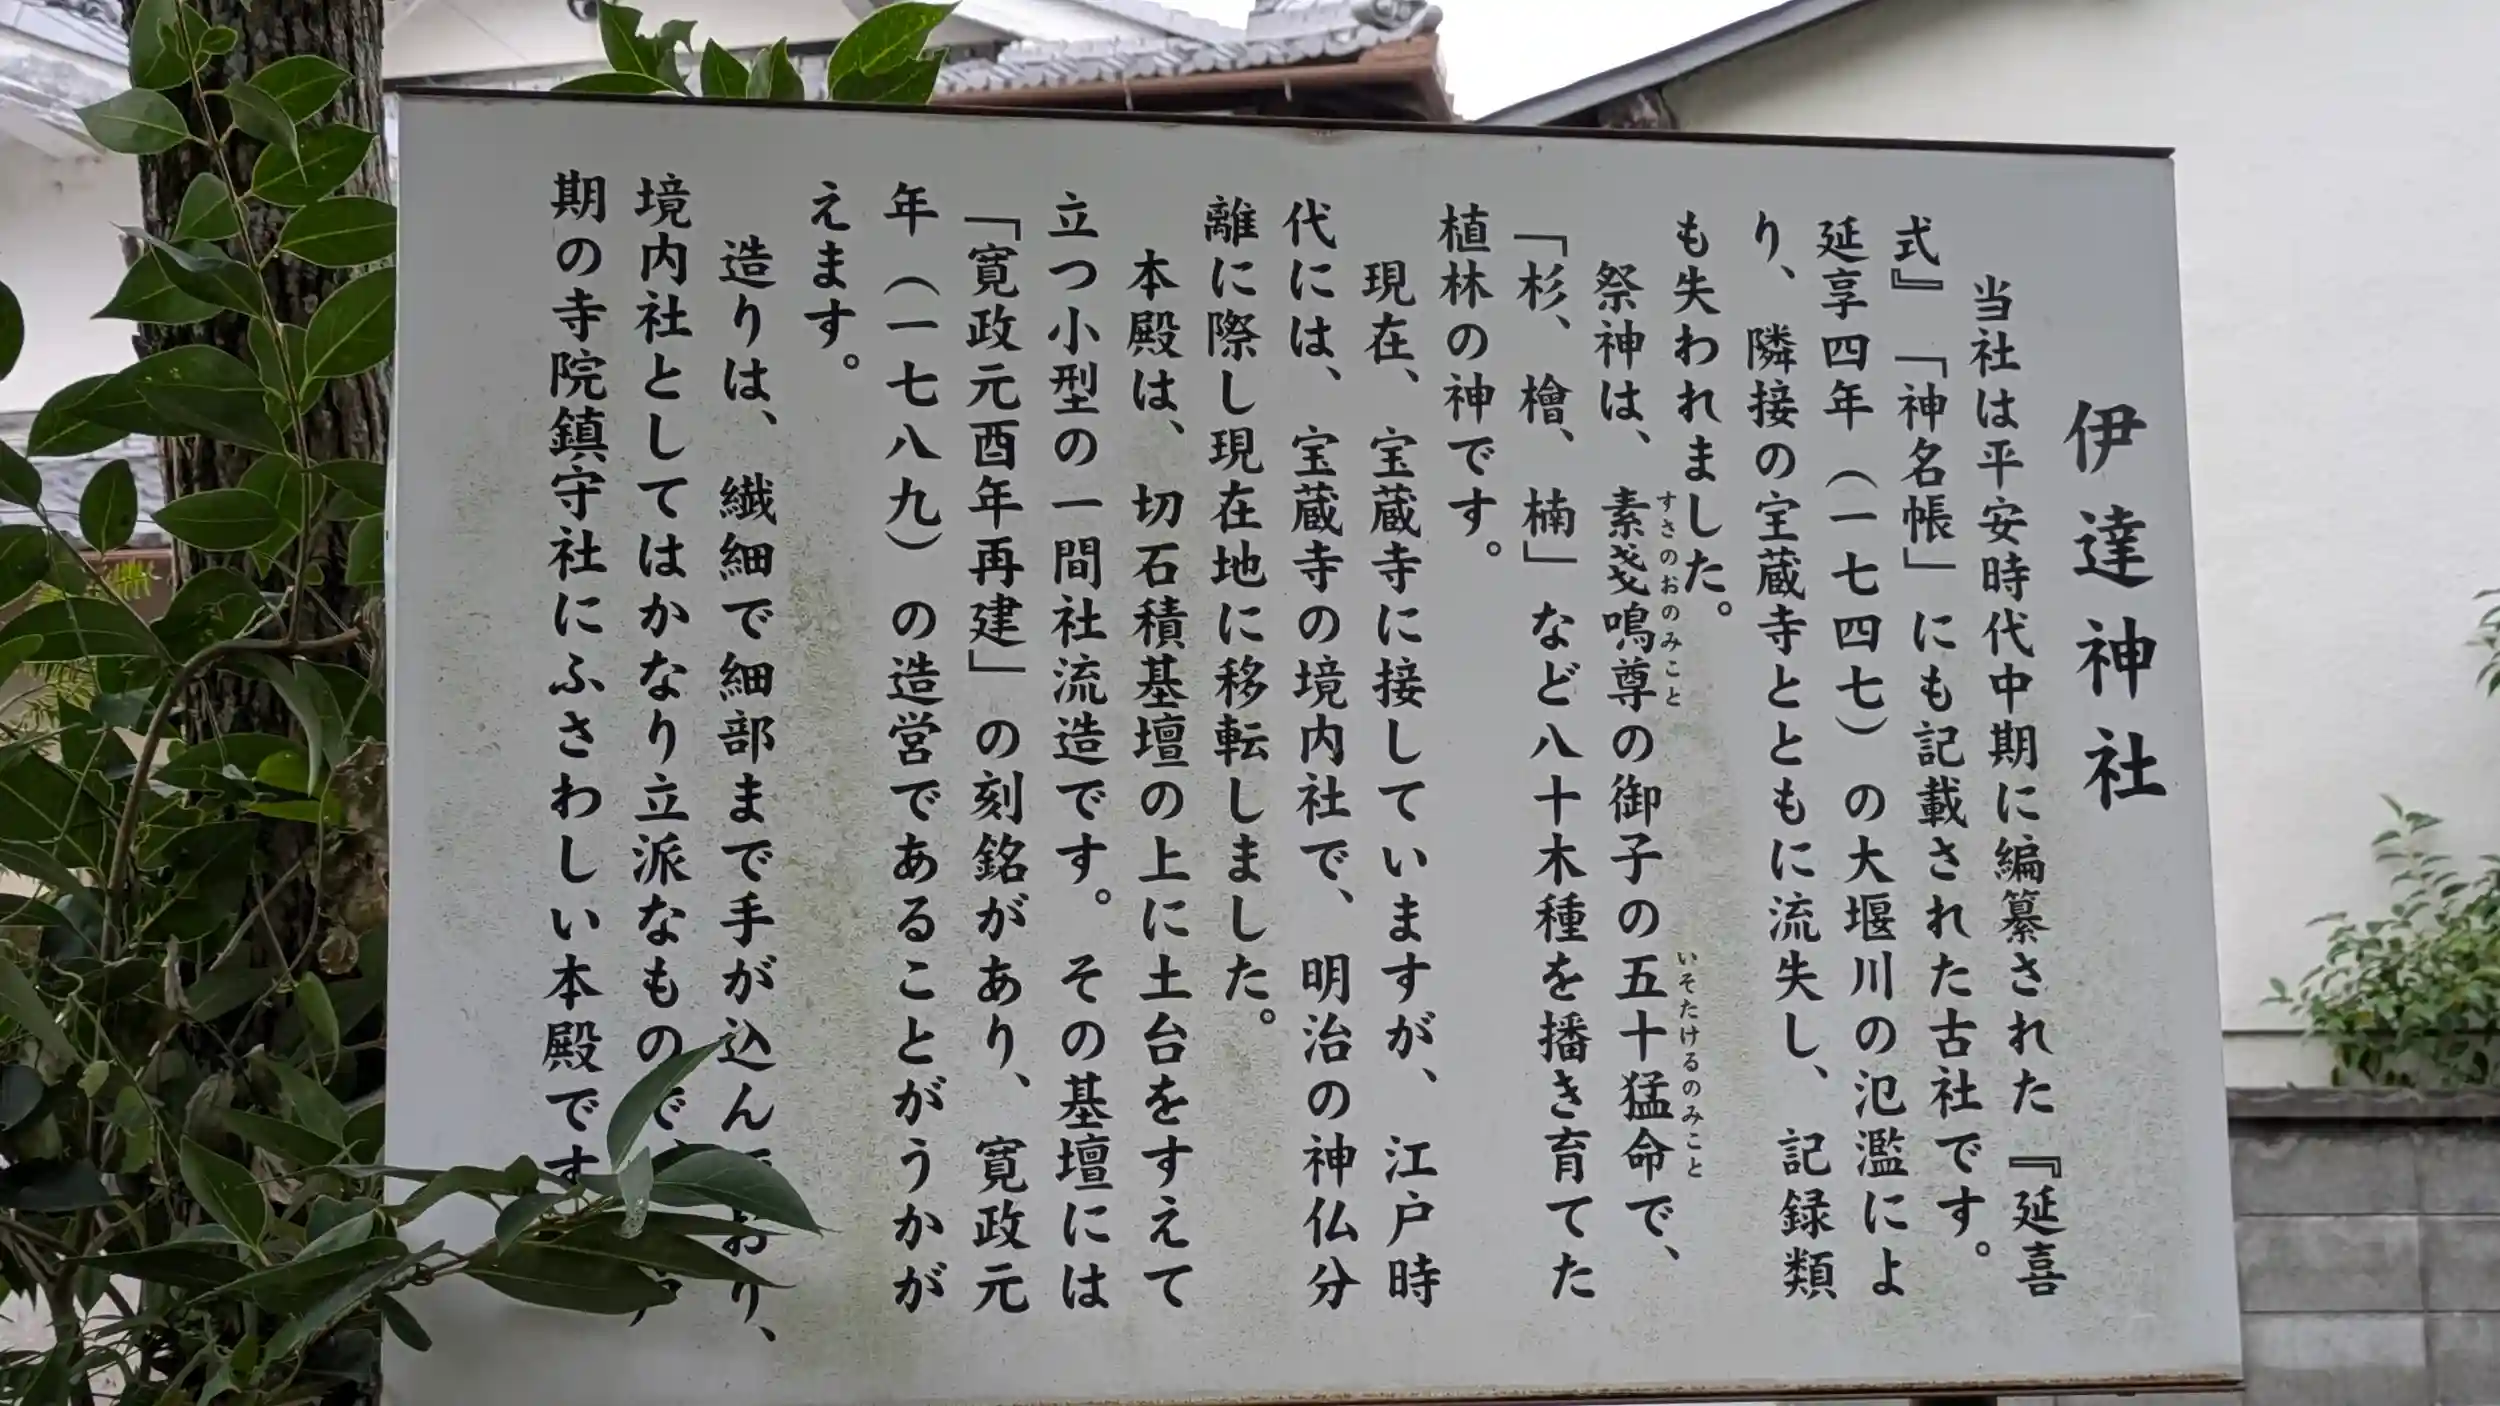 伊達神社
当社は平安時代中期に編纂された『延喜
式』「神名帳」にも記載された古社です。
延享四年（一七四七）の大堰川の氾濫によ
り、隣接の宝蔵寺とともに流失し、記録類
も失われました。
祭神は、素戔嗚尊の御子の五十猛命で、
すさのおのみこと
いそたけるのみこと
「杉、檜、楠」など八十木種を播き育てた
植林の神です。
現在、宝蔵寺に接していますが、江戸時
代には、宝蔵寺の境内社で、明治の神仏分
離に際し現在地に移転しました。
本殿は、切石積基壇の上に土台をすえて
立つ小型の一間社流造です。その基壇には
「寛政元酉年再建」の刻銘があり、寛政元
年（一七八九）の造営であることがうかが
えます。
造りは、繊細で細部まで手が込んでおり、
境内社としてはかなり立派なもので、
期の寺院鎮守社にふさわしい本殿です